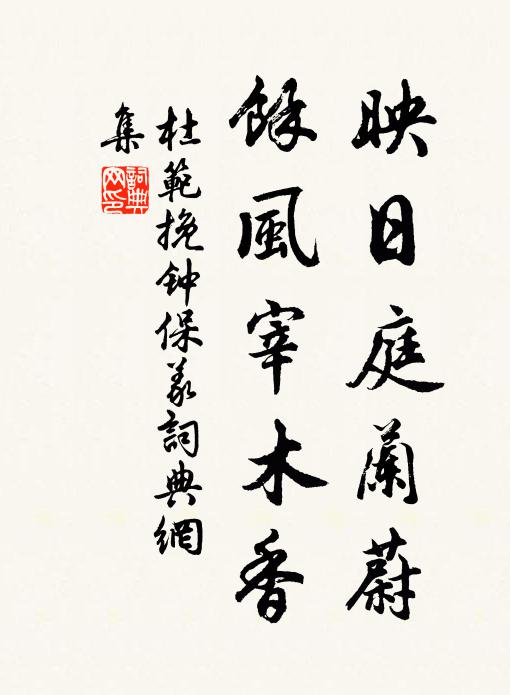 映日庭蘭蔚
餘風宰木香
杜範挽钟保義詞典網
集
詞典
网印